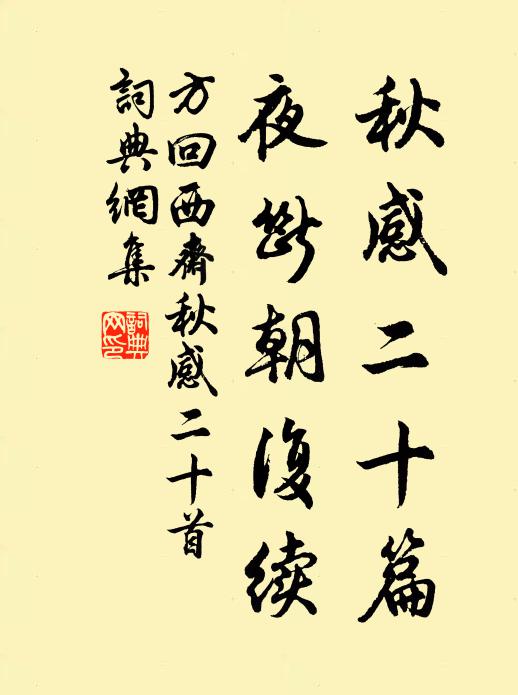 秋感二十篇
夜断朝復续
方回西齋秋感二十首
詞典網集
詞典
网印